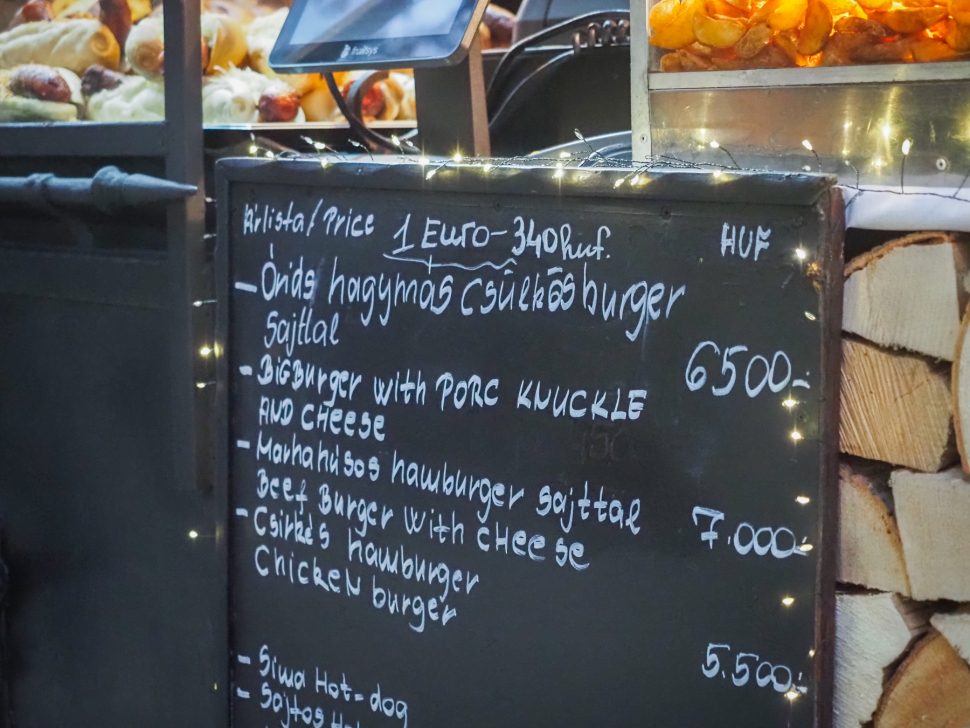 fruitsys
Árlista/Price 1 Euro-340huf. HUF
- Óriás hagymás csülkös burger
Sajttal
6500.-
- BiGBurger with PORC KNUCKLE
AND CHeese
- Marhahúsos hamburger sajttal
Beef Burger with cHeese
7.000.-
- Csirkés hamburger
Chicken burger
5.500.-
- Sima Hot-dog
- Sajtos